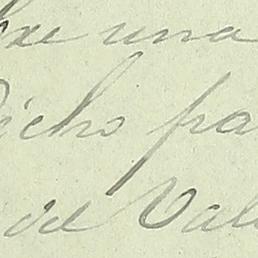 una
Dicho pa
de Val